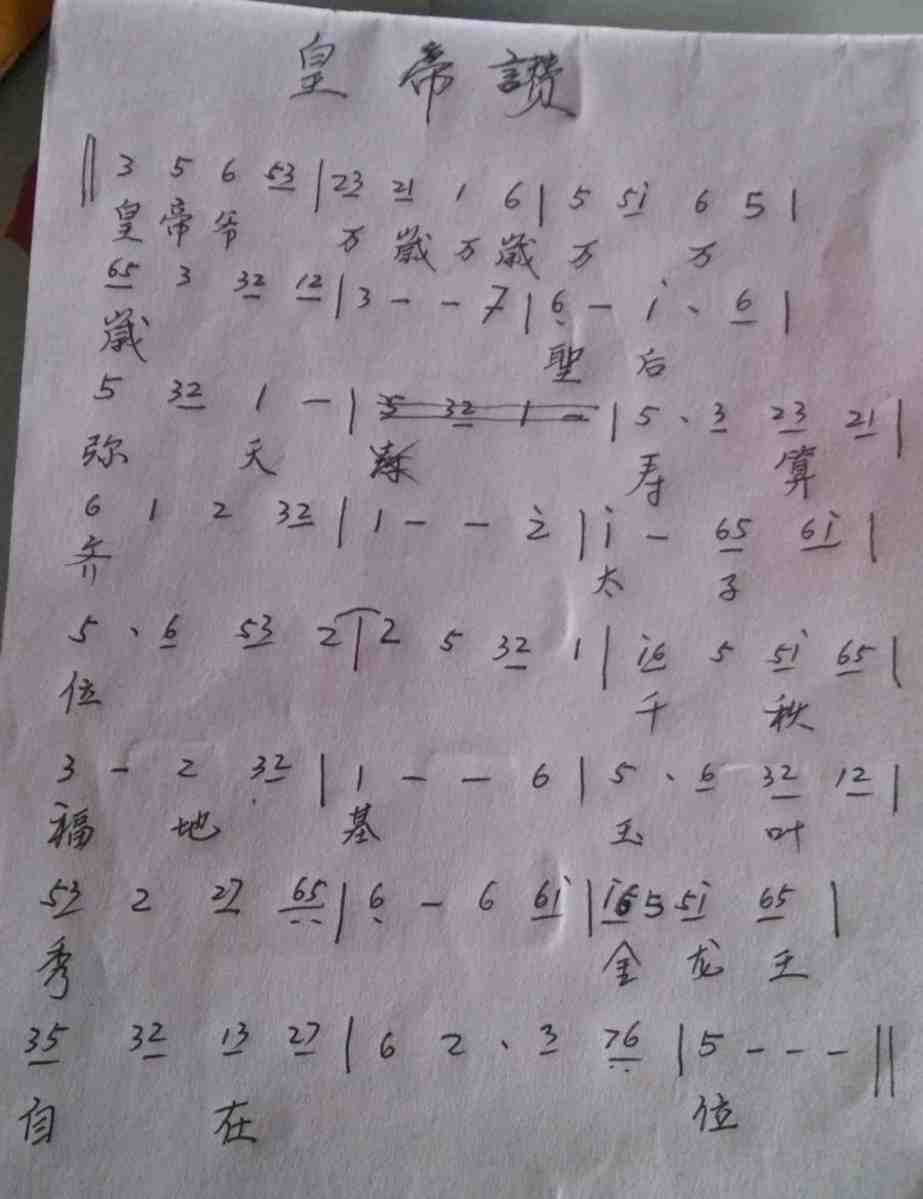 皇帝讚
‖ 3 5 6 53 | 23 21 1 6 | 5 5i 6 5 |
皇帝爷 万歲万歲万 万
65 3 32 12 | 3 - - 7 | 6 - i · 6 |
歲 聖后
5 32 1 - | 5 32 1 - | 5 · 3 23 21 |
弥天 寿算
6 1 2 32 | 1 - - 2 | i - 65 6i |
齐 太子
5 · 6 53 2 | 2 5 32 1 | i6 5 5i 65 |
位 千秋
3 - 2 32 | 1 - - 6 | 5 · 6 32 12 |
福地基 玉叶
53 2 27 65 | 6 - 6 6i | i6 5 5i 65 |
秀 金龙王
35 32 13 27 | 6 2 · 3 76 | 5 - - - ‖
自在 位